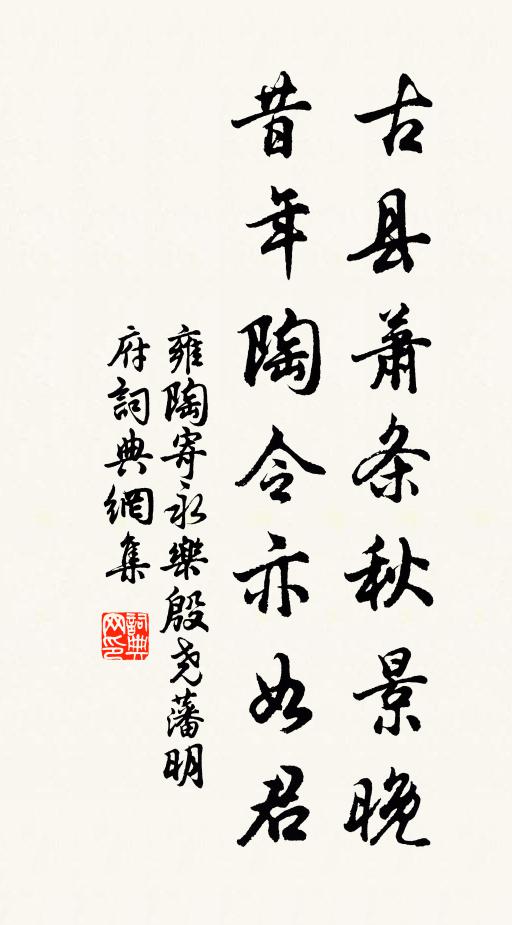 古县萧条秋景晚
昔年陶令亦如君
雍陶寄永樂殷尧藩明
府詞典網集
詞典网印